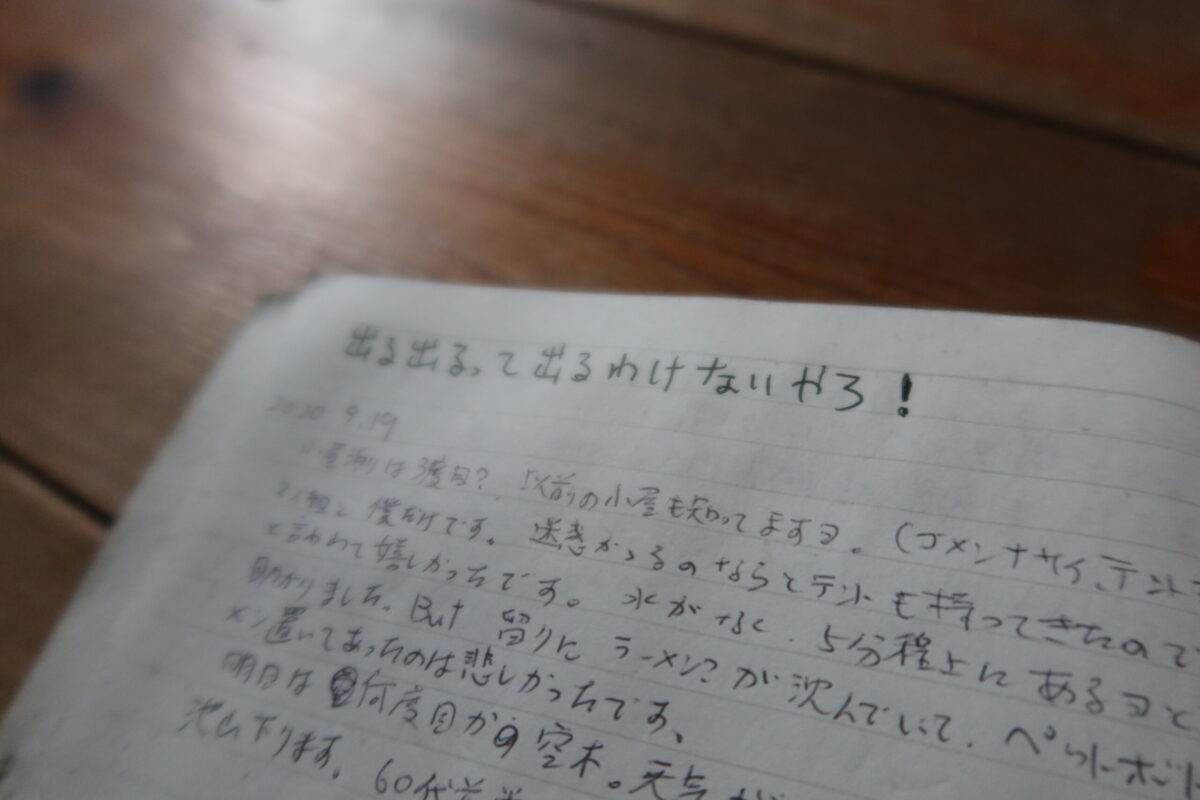 出る出るって出るわけないやろ!
2020 9.19
小屋泊りは3度目?以前の小屋も知ってますヨ。(ゴメンナサイ、テント
2人組と僕だけです。迷惑かゝるのならとテントも持ってきたので
と言われて嬉しかったです。水がなく、5分程上にあるヨと
助かりました。But 留りにラーメン?が沈んでいて、ペットボト
メン置いてあったのは悲しかったです、
明日は何度目かの空木。天気が
池山下ります。60代